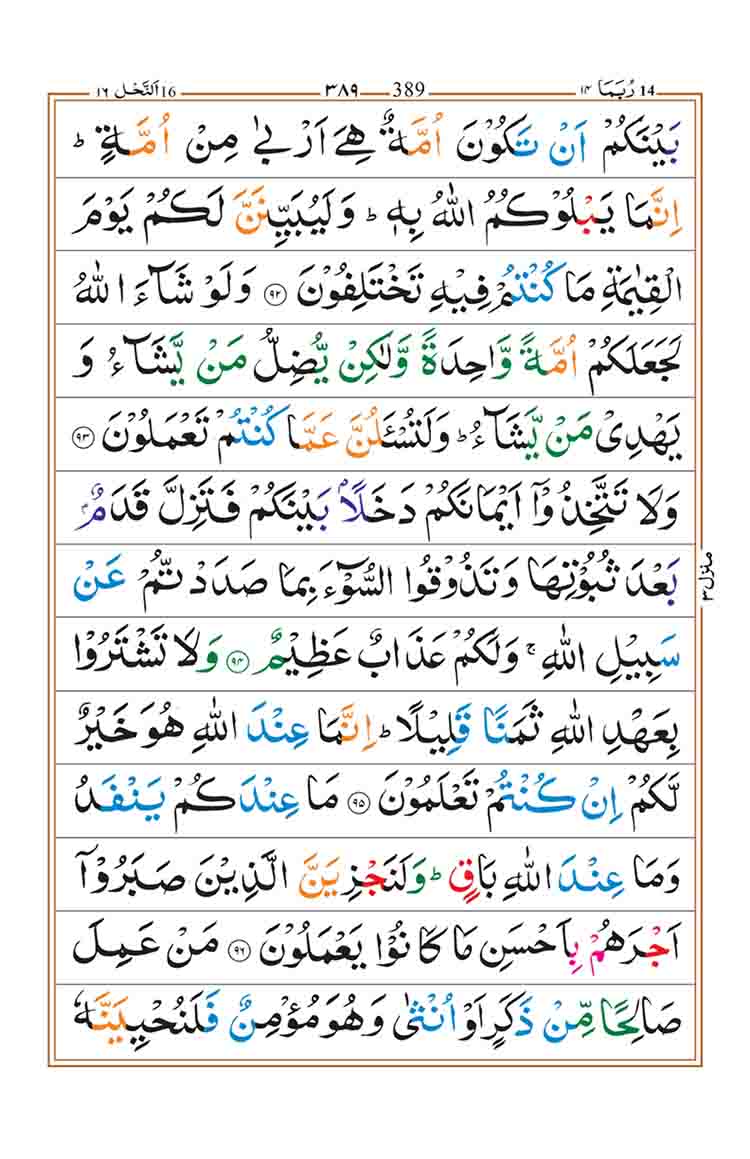 رُبَمَا ١٤ 14 389 ٣٨٩ اَلنَّحْل ١٦ 16
بَيْنَكُمْ اَنْ تَكُوْنَ اُمَّةٌ هِيَ اَرْبٰى مِنْ اُمَّةٍ ؕ
اِنَّمَا يَبْلُوْكُمُ اللّٰهُ بِهٖ ؕ وَلَيُبَيِّنَنَّ لَكُمْ يَوْمَ
الْقِيٰمَةِ مَا كُنْتُمْ فِيْهِ تَخْتَلِفُوْنَ ۝٩٢ وَلَوْ شَآءَ اللّٰهُ
لَجَعَلَكُمْ اُمَّةً وَّاحِدَةً وَّلٰكِنْ يُّضِلُّ مَنْ يَّشَآءُ وَ
يَهْدِيْ مَنْ يَّشَآءُ ؕ وَلَتُسْـَٔلُنَّ عَمَّا كُنْتُمْ تَعْمَلُوْنَ ۝٩٣
وَلَا تَتَّخِذُوْۤا اَيْمَانَكُمْ دَخَلًاۢ بَيْنَكُمْ فَتَزِلَّ قَدَمٌۢ
بَعْدَ ثُبُوْتِهَا وَتَذُوْقُوا السُّوْٓءَ بِمَا صَدَدْتُّمْ عَنْ
سَبِيْلِ اللّٰهِ ۚ وَلَكُمْ عَذَابٌ عَظِيْمٌ ۝٩٤ وَلَا تَشْتَرُوْا
بِعَهْدِ اللّٰهِ ثَمَنًا قَلِيْلًا ؕ اِنَّمَا عِنْدَ اللّٰهِ هُوَ خَيْرٌ
لَّكُمْ اِنْ كُنْتُمْ تَعْلَمُوْنَ ۝٩٥ مَا عِنْدَكُمْ يَنْفَدُ
وَمَا عِنْدَ اللّٰهِ بَاقٍ ؕ وَلَنَجْزِيَنَّ الَّذِيْنَ صَبَرُوْۤا
اَجْرَهُمْ بِاَحْسَنِ مَا كَانُوْا يَعْمَلُوْنَ ۝٩٦ مَنْ عَمِلَ
صَالِحًا مِّنْ ذَكَرٍ اَوْ اُنْثٰى وَهُوَ مُؤْمِنٌ فَلَنُحْيِيَنَّهٗ
منزل ٣